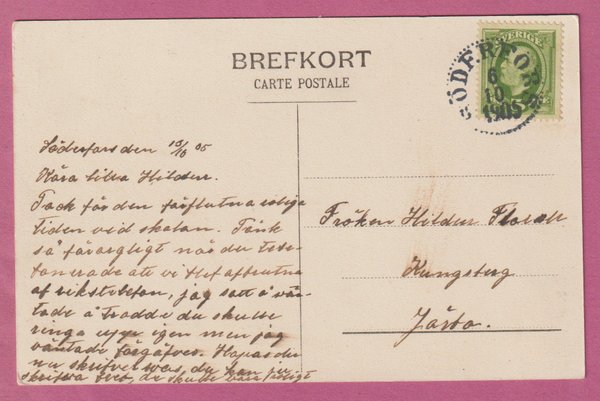 BREFKORT
CARTE POSTALE
SVERIGE
SÖDERFORS
6
10
1905
Söderfors den 15/10 05
Kära lilla Hildur.
Tack för den förflutna roliga
tiden vid skolan. Tänk
så förargligt när du tele-
fonerade att vi blef afbrutna
af rikstelefon, jag satt å vän-
tade å trodde du skulle
ringa upp igen men jag
väntade förgäfves. Hoppas du
nu skrifver
skrifva du skulle bara
Fröken Hildur
Kungsberg
Järbo.